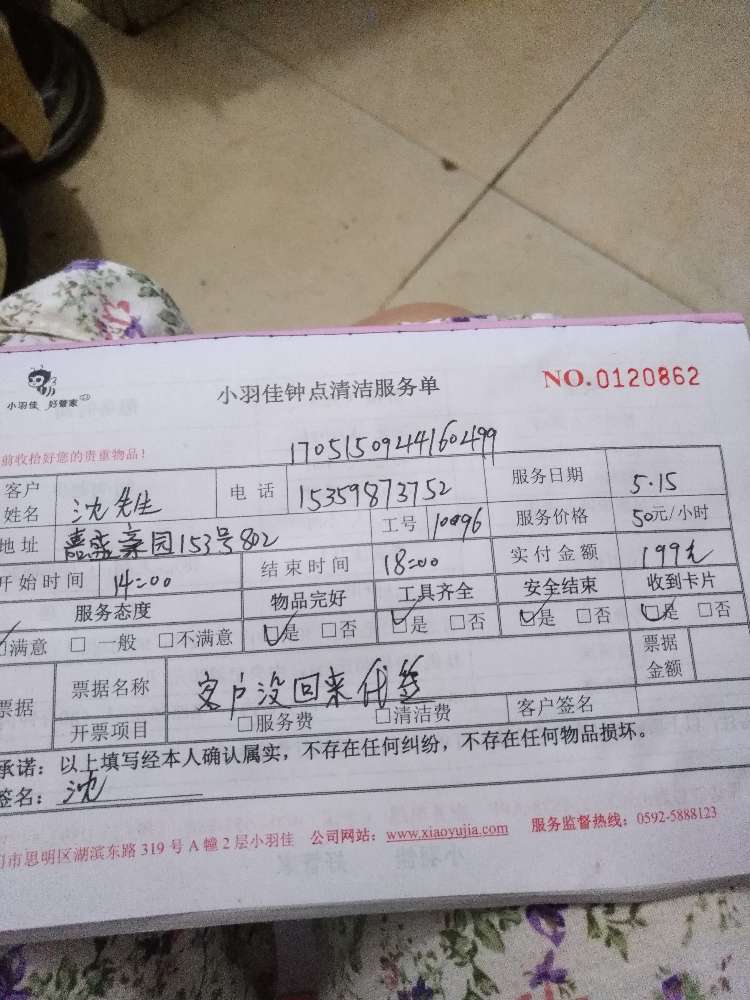 小羽佳 好管家
小羽佳钟点清洁服务单
NO.0120862
前收拾好您的贵重物品！
17051509444160499
客户姓名 沈先生 电话 15359873752 服务日期 5.15
地址 园153号802 工号 10096 服务价格 50元/小时
开始时间 14:00 结束时间 18:00 实付金额 199元
服务态度 物品完好 工具齐全 安全结束 收到卡片
☑满意 □一般 □不满意 ☑是 □否 ☑是 □否 ☑是 □否 ☑是 □否
票据 票据名称 客户没回来代签 票据金额
开票项目 □服务费 □清洁费 客户签名
承诺：以上填写经本人确认属实，不存在任何纠纷，不存在任何物品损坏。
签名：沈
门市思明区湖滨东路319号A幢2层小羽佳 公司网站：www.xiaoyujia.com 服务监督热线：0592-5888123